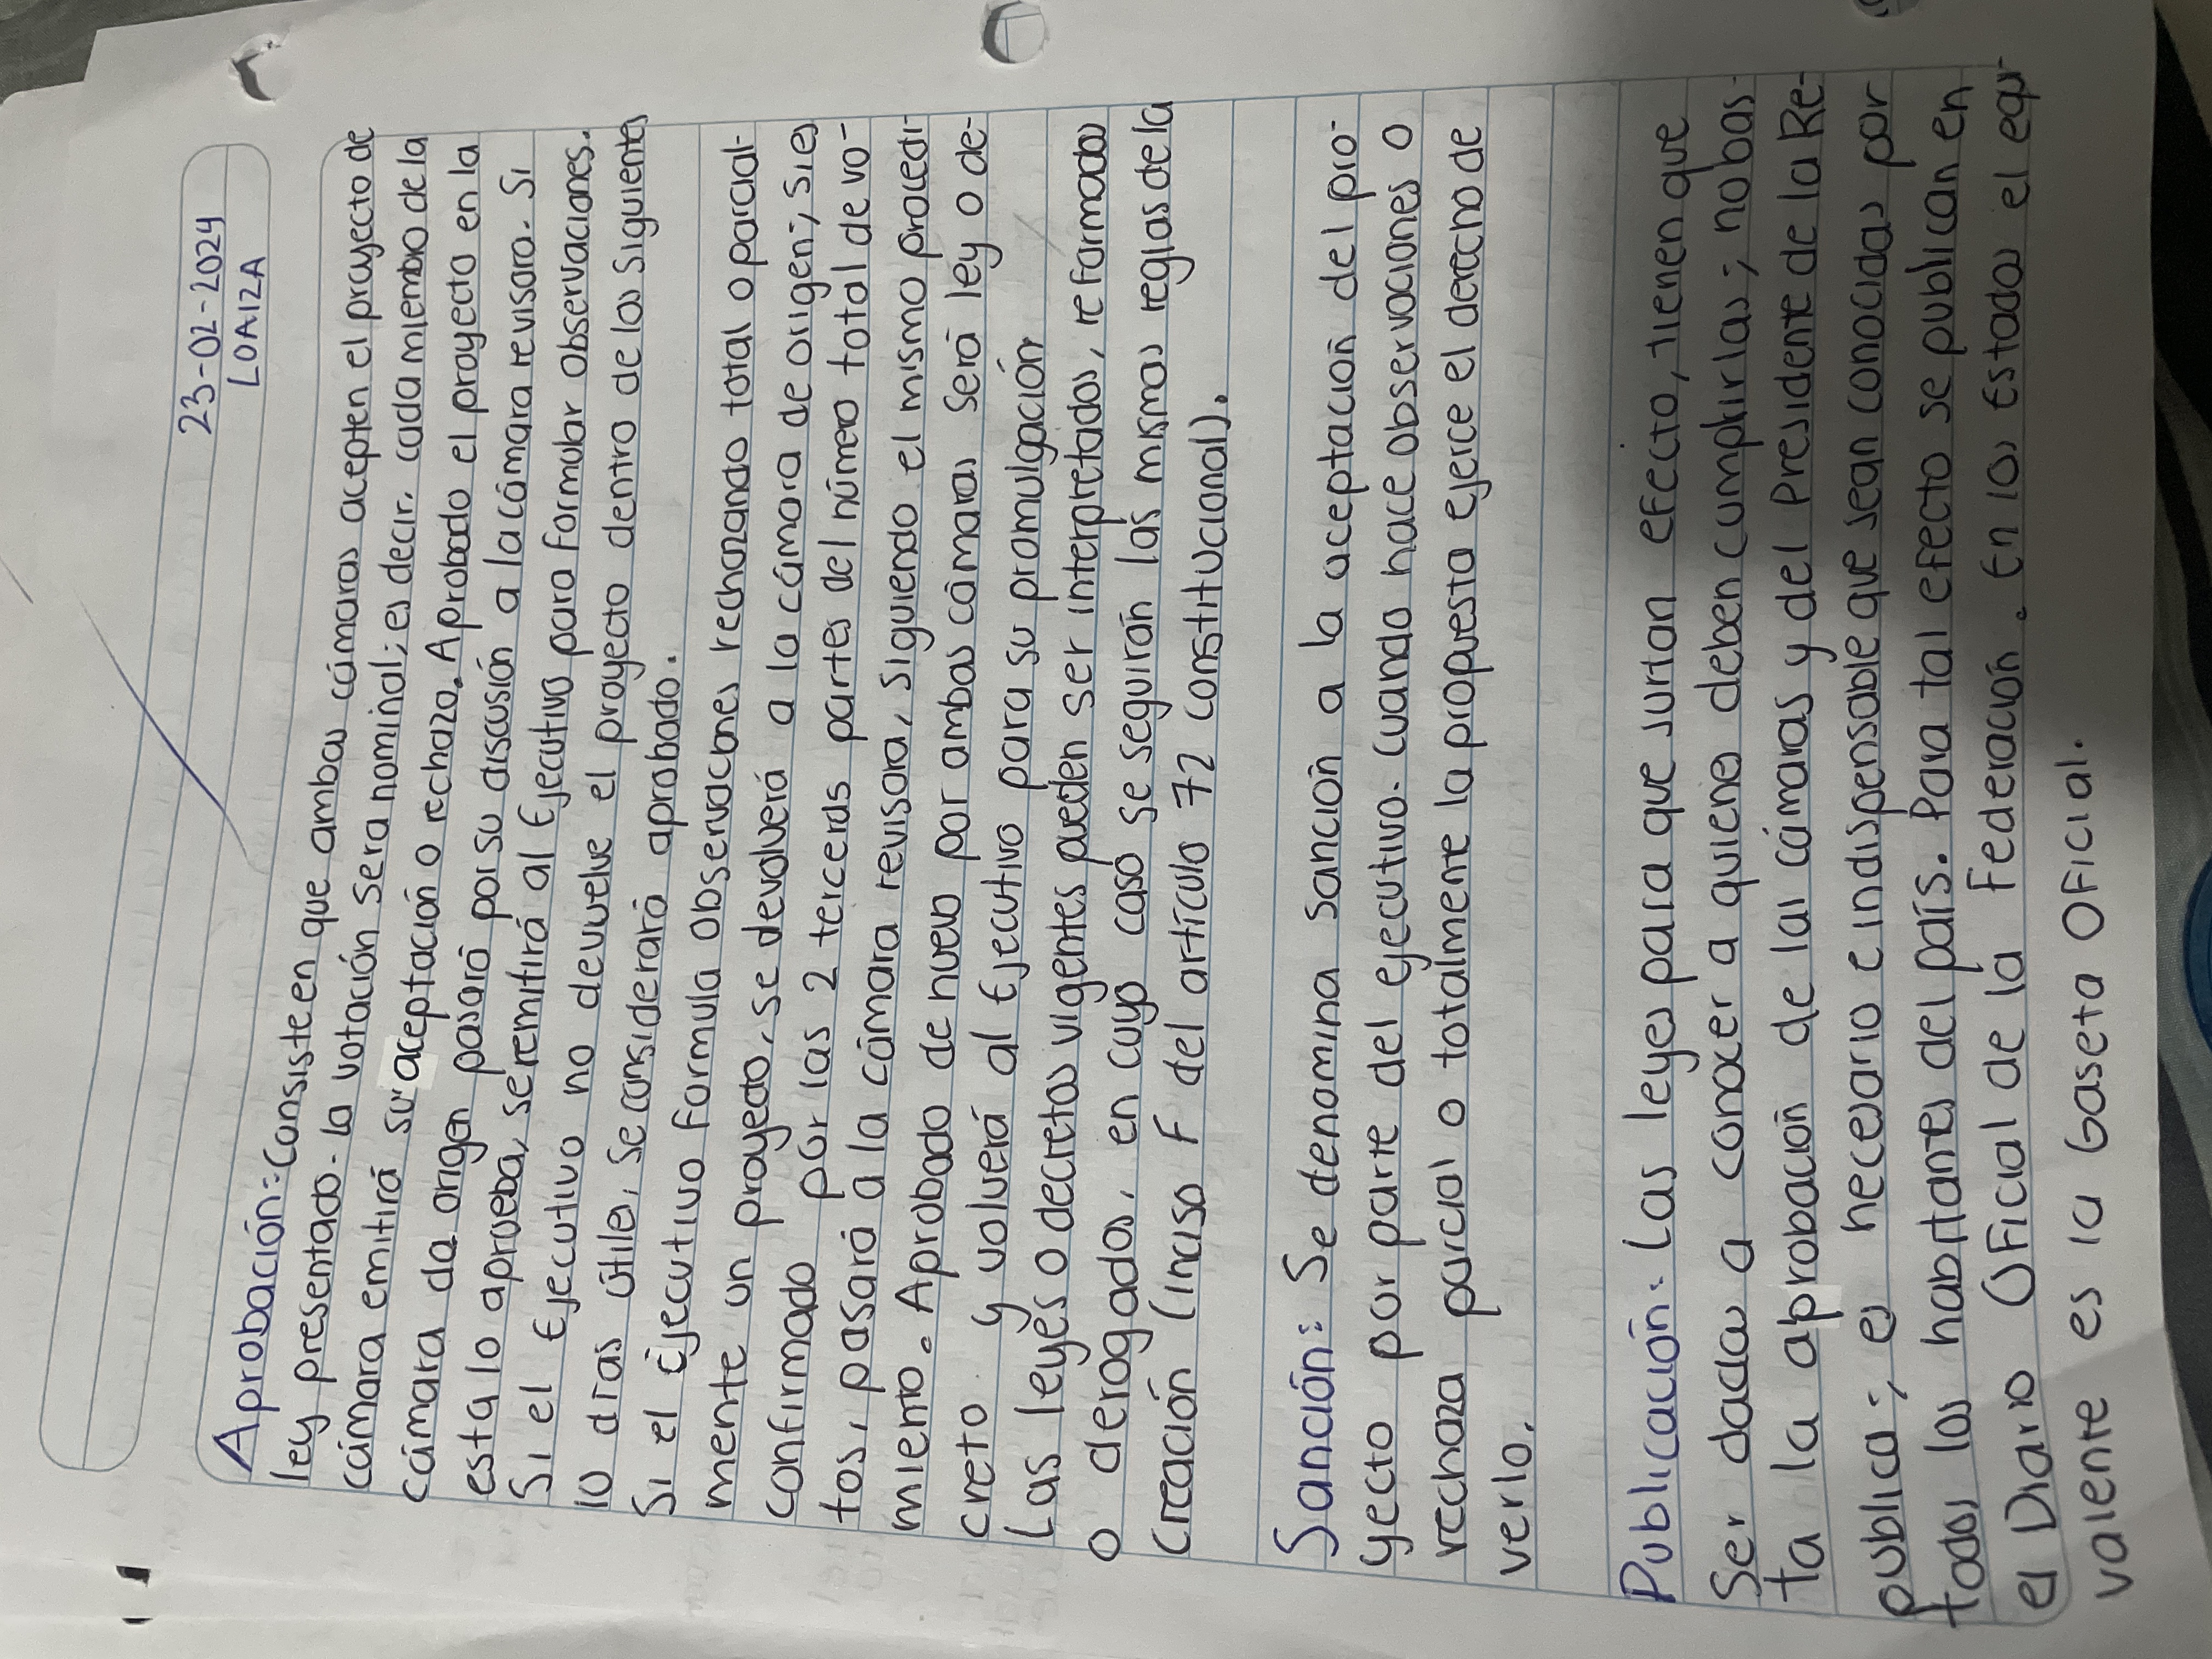 23-02-2024
LOAIZA
Aprobación: Consiste en que ambas cámaras acepten el proyecto de
ley presentado. la votación sera nominal; es decir, cada miembro de la
cámara emitirá su aceptación o rechazo. Aprobado el proyecto en la
cámara da origen pasará por su discusión a la cámara revisora. Si
esta lo aprueba, se remitirá al Ejecutivo para formular observaciones.
Si el Ejecutivo no devuelve el proyecto dentro de los siguientes
10 días útiles, se considerará aprobado.
Si el Ejecutivo formula observaciones rechazando total o parcial-
mente un proyecto, se devolverá a la cámara de origen; si es
confirmado por las 2 terceras partes del número total de vo-
tos, pasará a la cámara revisora, siguiendo el mismo procedi-
miento. Aprobado de nuevo por ambas cámaras será ley o de-
creto y volverá al Ejecutivo para su promulgación
Las leyes o decretos vigentes pueden ser interpretados, reformados
o derogados, en cuyo caso se seguirán las mismas reglas de la
Creación (inciso F del artículo 72 constitucional).
Sanción: Se denomina sanción a la aceptación del pro-
yecto por parte del ejecutivo. cuando hace observaciones o
rechaza parcial o totalmente la propuesta ejerce el derecho de
verlo.
Publicación: Las leyes para que surtan efecto, tienen que
Ser dadas a conocer a quienes deben cumplirlas; no bas-
ta la aprobación de las cámaras y del Presidente de la Re-
publica; es necesario e indispensable que sean conocidas por
todos los habitantes del país. Para tal efecto se publican en
el Diario Oficial de la Federación. En los Estados el equi-
valente es la Gaseta Oficial.